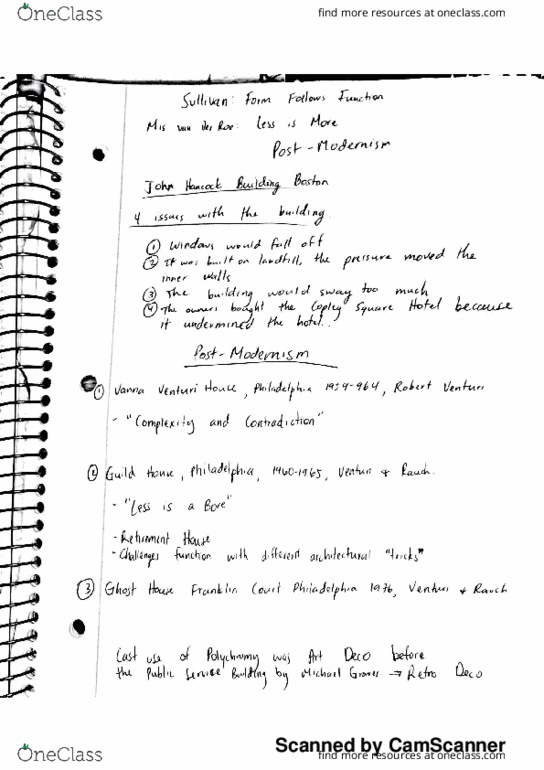 OneClass
find more resources at oneclass.com
Sullivan: Form Follows Function
Mis van der Roe: Less is More
Post-Modernism
John Hancock Building Boston
4 issues with the building
① Windows would fall off
② It was built on landfill, the pressure moved the
inner walls
③ The building would sway too much
④ The owners bought the Copley Square Hotel because
it undermined the hotel..
Post-Modernism
① Vanna Venturi House, Philadelphia 1959-964, Robert Venturi
- "Complexity and Contradiction"
② Guild House, Philadelphia, 1960-1965, Venturi & Rauch.
- "Less is a Bore"
- Retirement House
- Challenges function with different architectural "tricks"
③ Ghost House Franklin Court Philadelphia 1976, Venturi & Rauch
Last use of Polychromy was Art Deco before
the Public Service Building by Michael Graves → Retro Deco
Scanned by CamScanner
OneClass
find more resources at oneclass.com